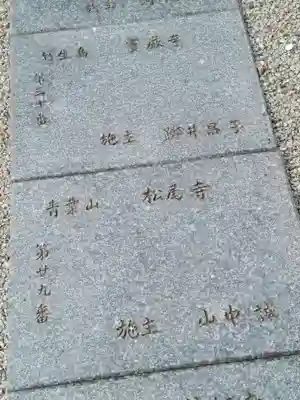 竹生島 寳厳寺
第三十番
施主
青葉山 松尾寺
第廿九番
施主 山中誠